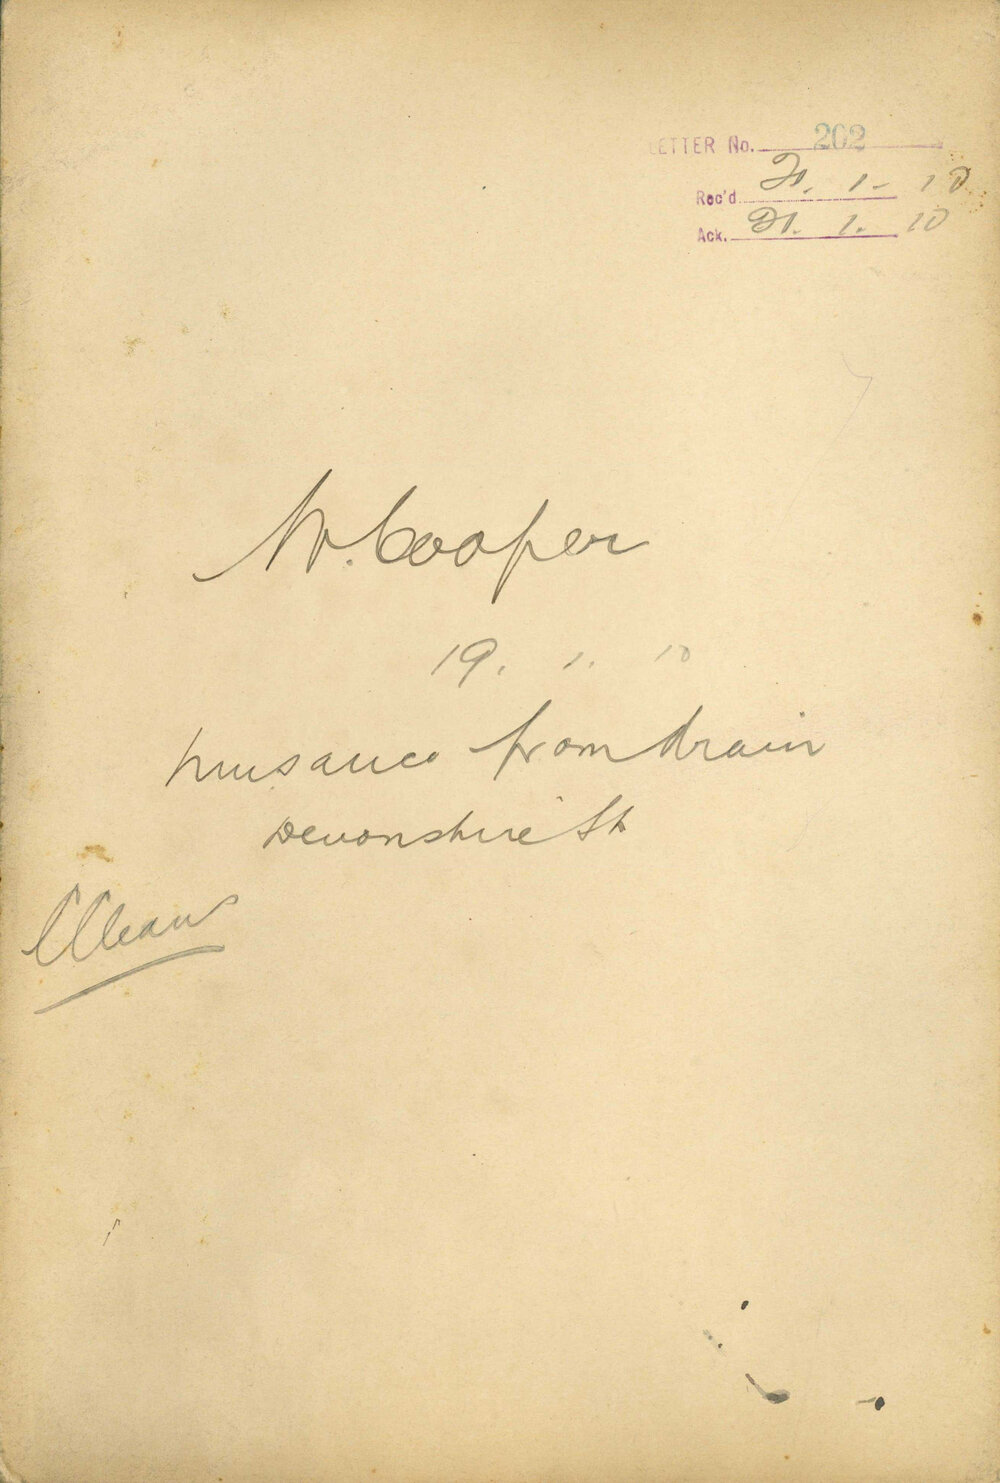 LETTER No. 202
Rec'd 21. 1. 10
Ack. 21. 1. 10
W. Cooper
19. 1. 10
Nuisance from drain
Devonshire St